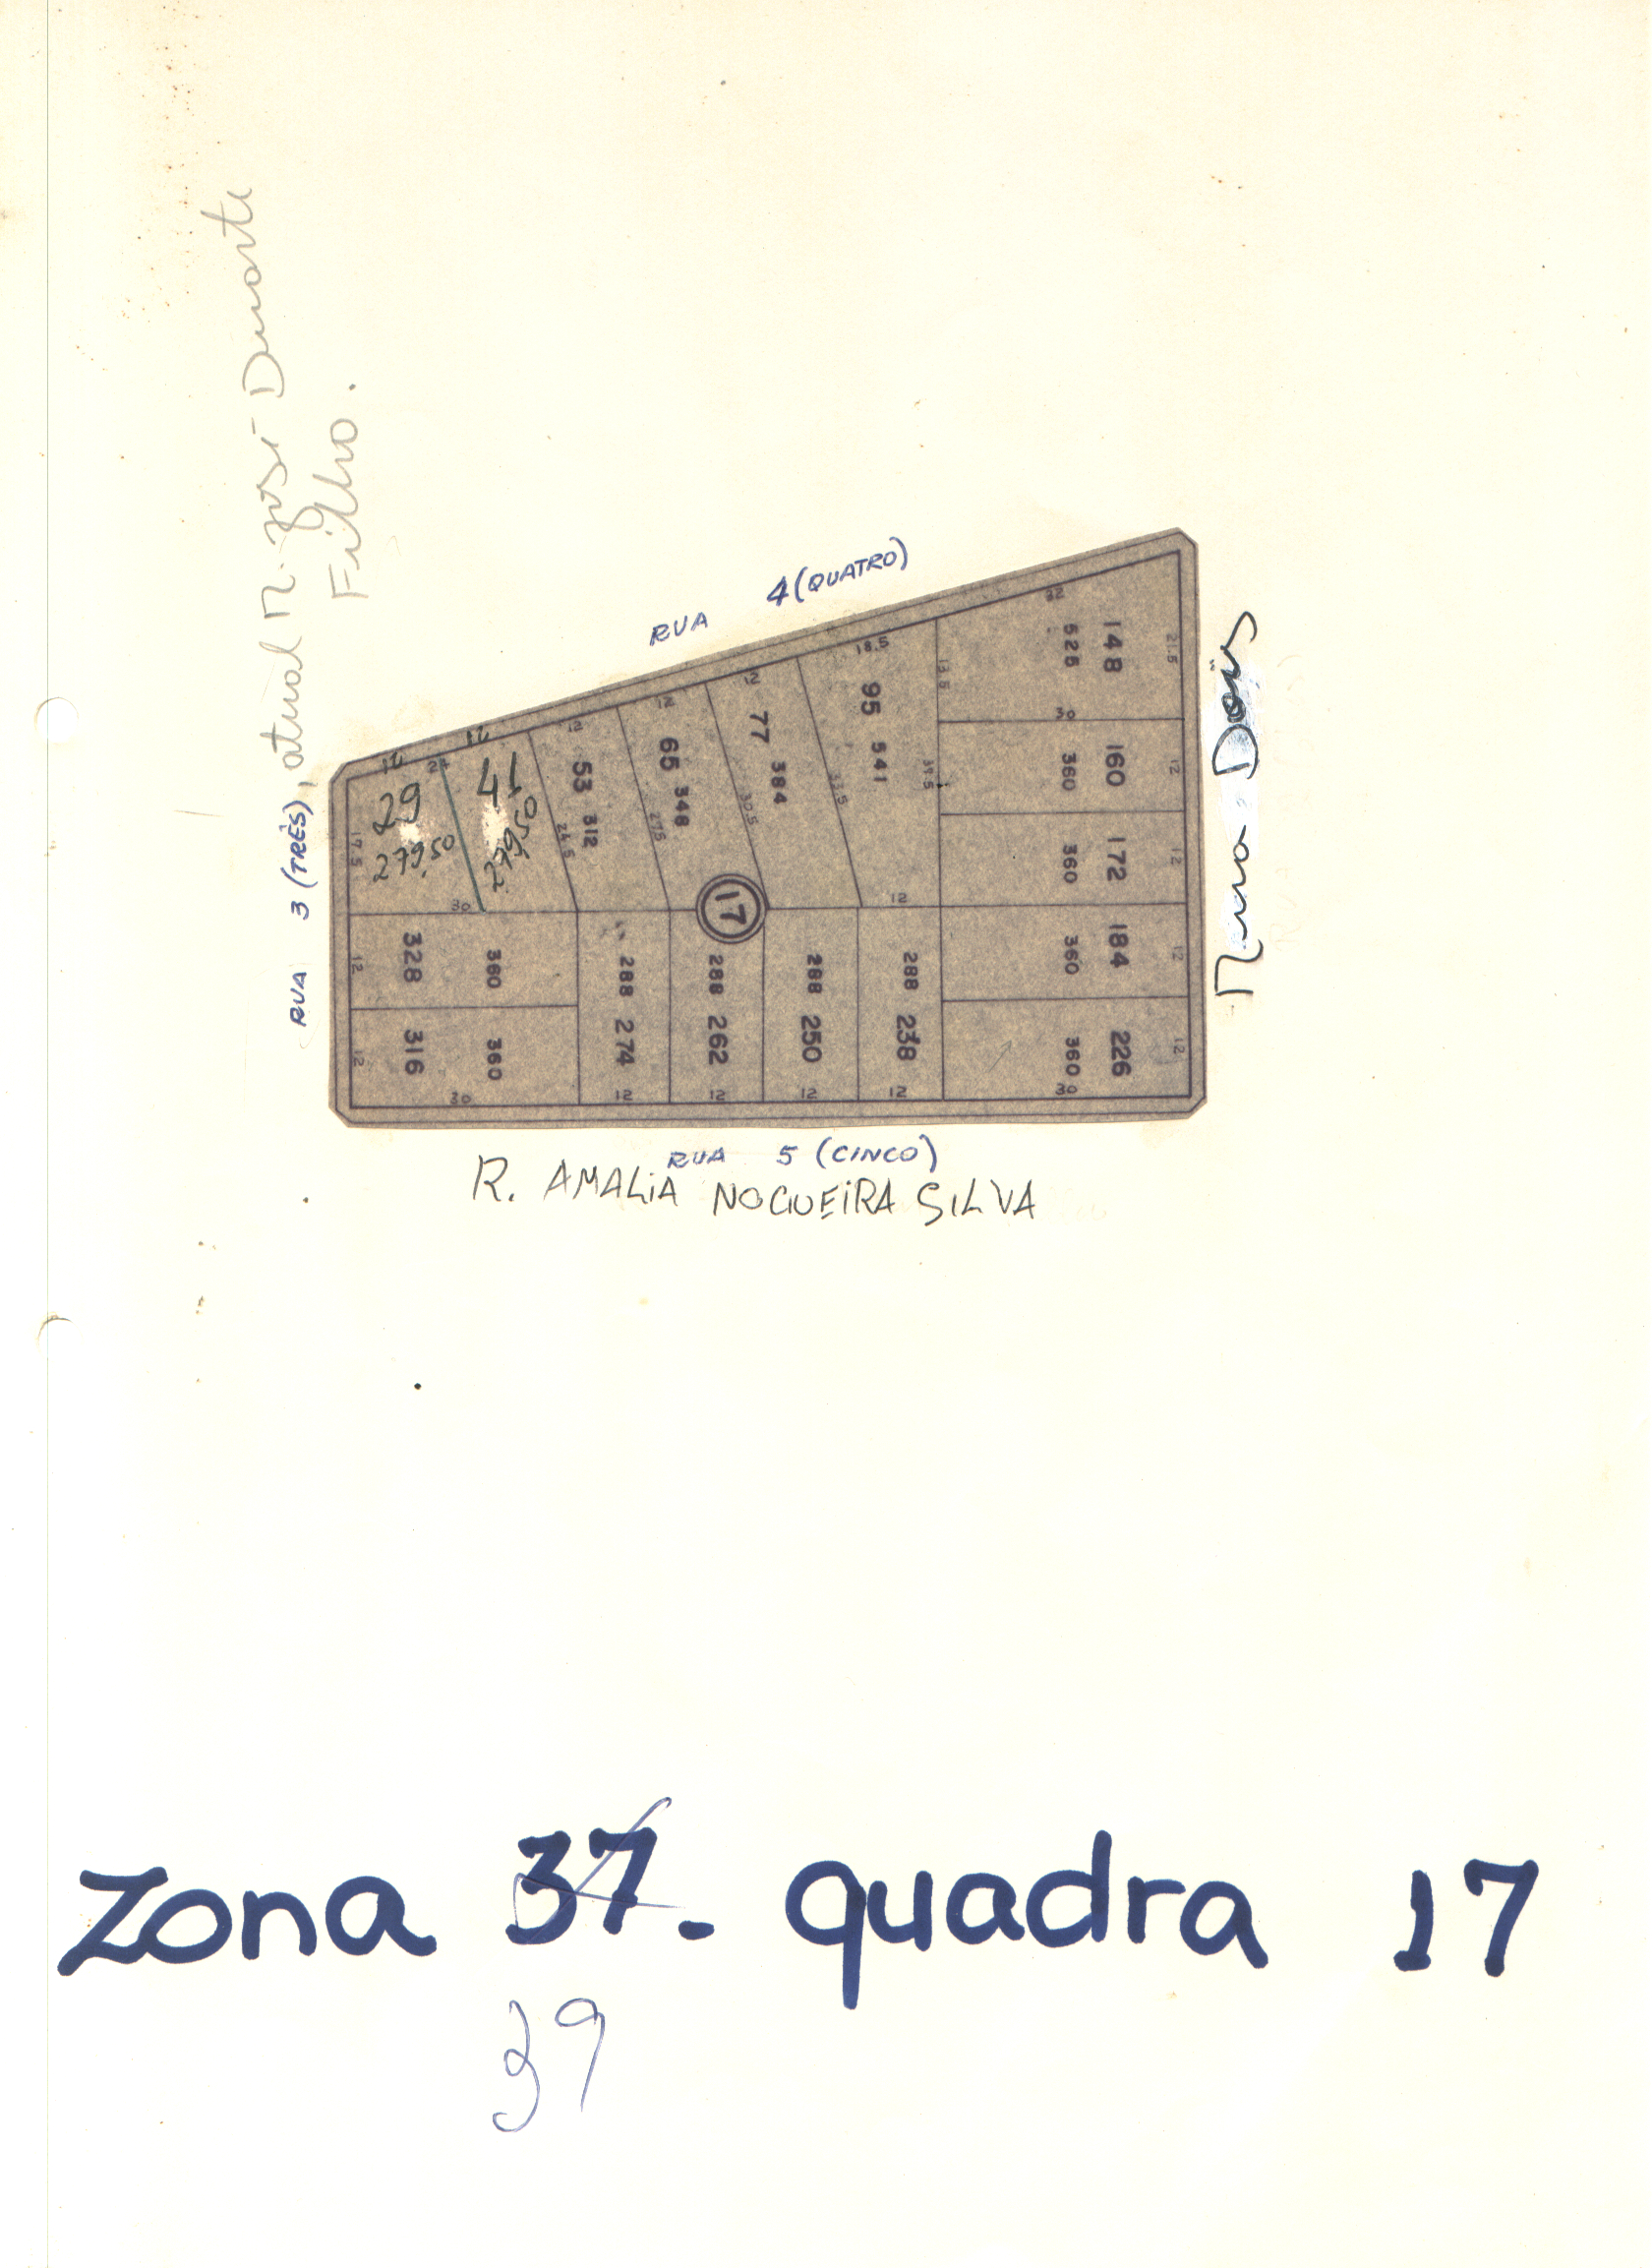 RUA 3 (TRÊS), atual R. José Duarte
Filho.
RUA 4 (QUATRO)
Rua Dois
32
148
525
21.5
13.5
30
160
360
12
172
360
12
184
360
12
226
360
12
30
18.5
95 541
39.5
12
12
77 384
33.5
12
65 348
30.5
12
53 312
27.5
24.5
12
41
279,50
12
24
29
279,50
17.5
30
17
328 360
12
316 360
12
30
288 274
12
288 262
12
288 250
12
288 238
12
RUA 5 (CINCO)
R. AMALIA NOGUEIRA SILVA
Zona 37. quadra 17
39